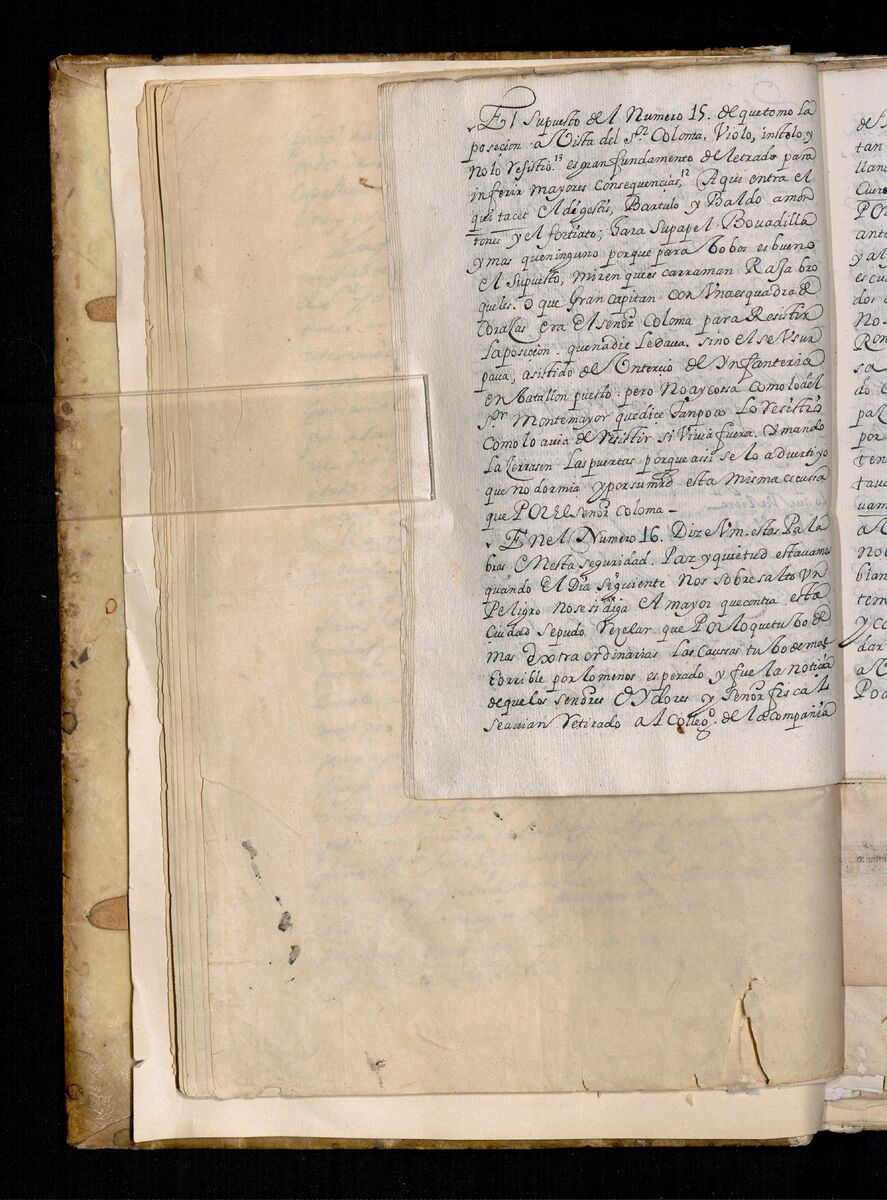 El Supuesto del Numero 15. de que tomo la
posecion a Vista del Sr. Coloma, Violo, instolo y
No lo resistio.¹³ es gran fundamento de letrado para
inferir mayores Consequencias,¹² Aqui entra el
qui tacet el digestis, Bartulo y Baldo amon
tones y el fortiato; Gara Supapel. Bouadilla
y mas que ninguno porque para Bobos es bueno
el Supuesto, miren que es carraman Rassa bro
queles. o que Gran Capitan con Vna esquadra de
Corassas era El señor Coloma para Resistir
La posecion. que nadie Le daua. sino el se Vsur
paua, asistido de Vn tercio de Ynfanteria
en batallon puesto: pero No ay cossa como lo del
Sor. Montemayor que dice Tanpoco Lo resistio
Como lo auia de resistir si Viuia fuera. Y mando
La Zerrasen Las puertas porque assi se lo aduerti yo
que no dormia y porsumrd esta misma escussa
que POR El señor Coloma
En el Numero 16. Dize Vm. estas Pala
bras En esta seguridad. Paz y quietud estauamos
quando El Dia siguiente Nos sobresalto Vn
Peligro No se si diga el mayor que contra esta
Ciudad se pudo rezelar que Por lo que tubo de
mas extraordinarias las Caussas tubo de mas
Eorrible por lo menos esperado y fue la noticia
de que los señores OYdores y Señor fiscal
se auian retirado al Collego. de la Compañia
de
tan
llan
POR
ant
y al
escu
dos
No s
Ron
sa
do
pa
por
ten
tau
uam
a
no
blan
tem
y co
dar
a
Po